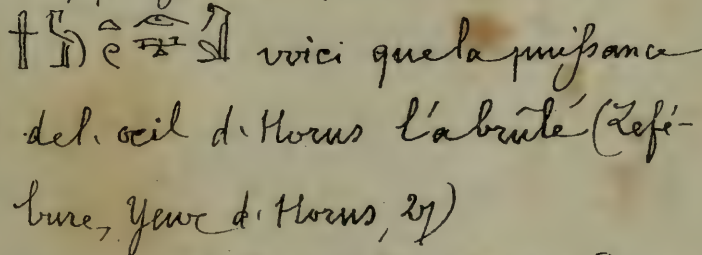 voici que la puissance
de l'oeil d'Horus l'a brûlé (Lefé-
bure, Yeux d'Horus, 27)